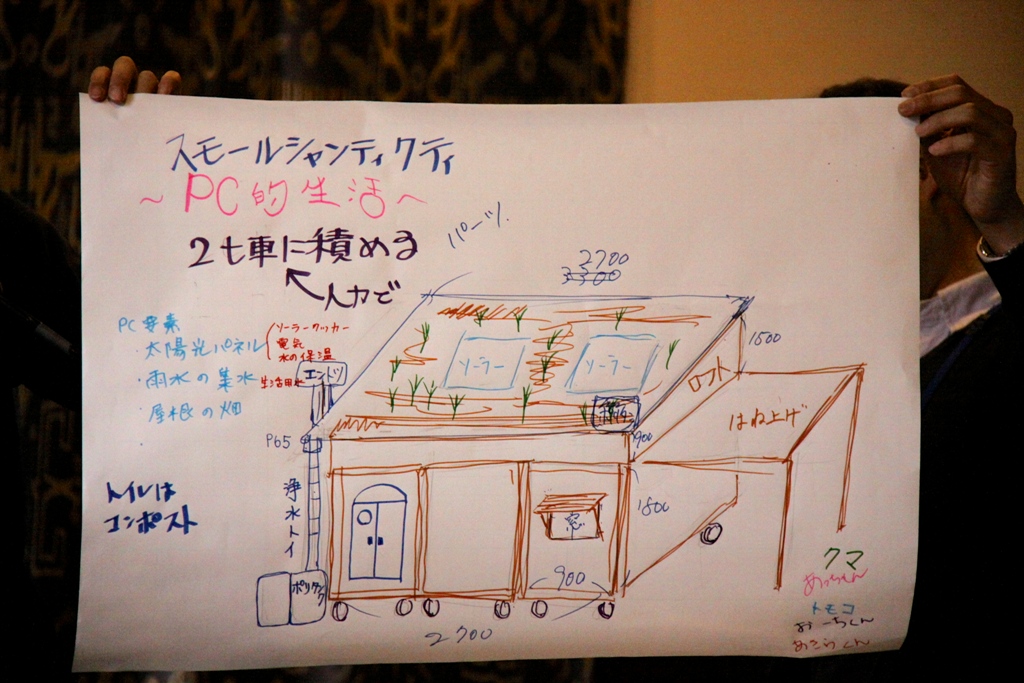 スモールシャンティクティ
～PC的生活～
2t車に積める
人力で
パーツ
2700
3300
PC要素
・太陽光パネル
ソーラークッカー
電気
水の保温
・雨水の集水
生活用水
・屋根の畑
・
エントツ
ソーラー
ソーラー
ロフト
1500
はね上げ
900
P65
浄水トイ
トイレは
コンポスト
ポリタンク
窓
1800
900
2700
クマ
あっちゃん
トモコ
おーちくん
あきらくん